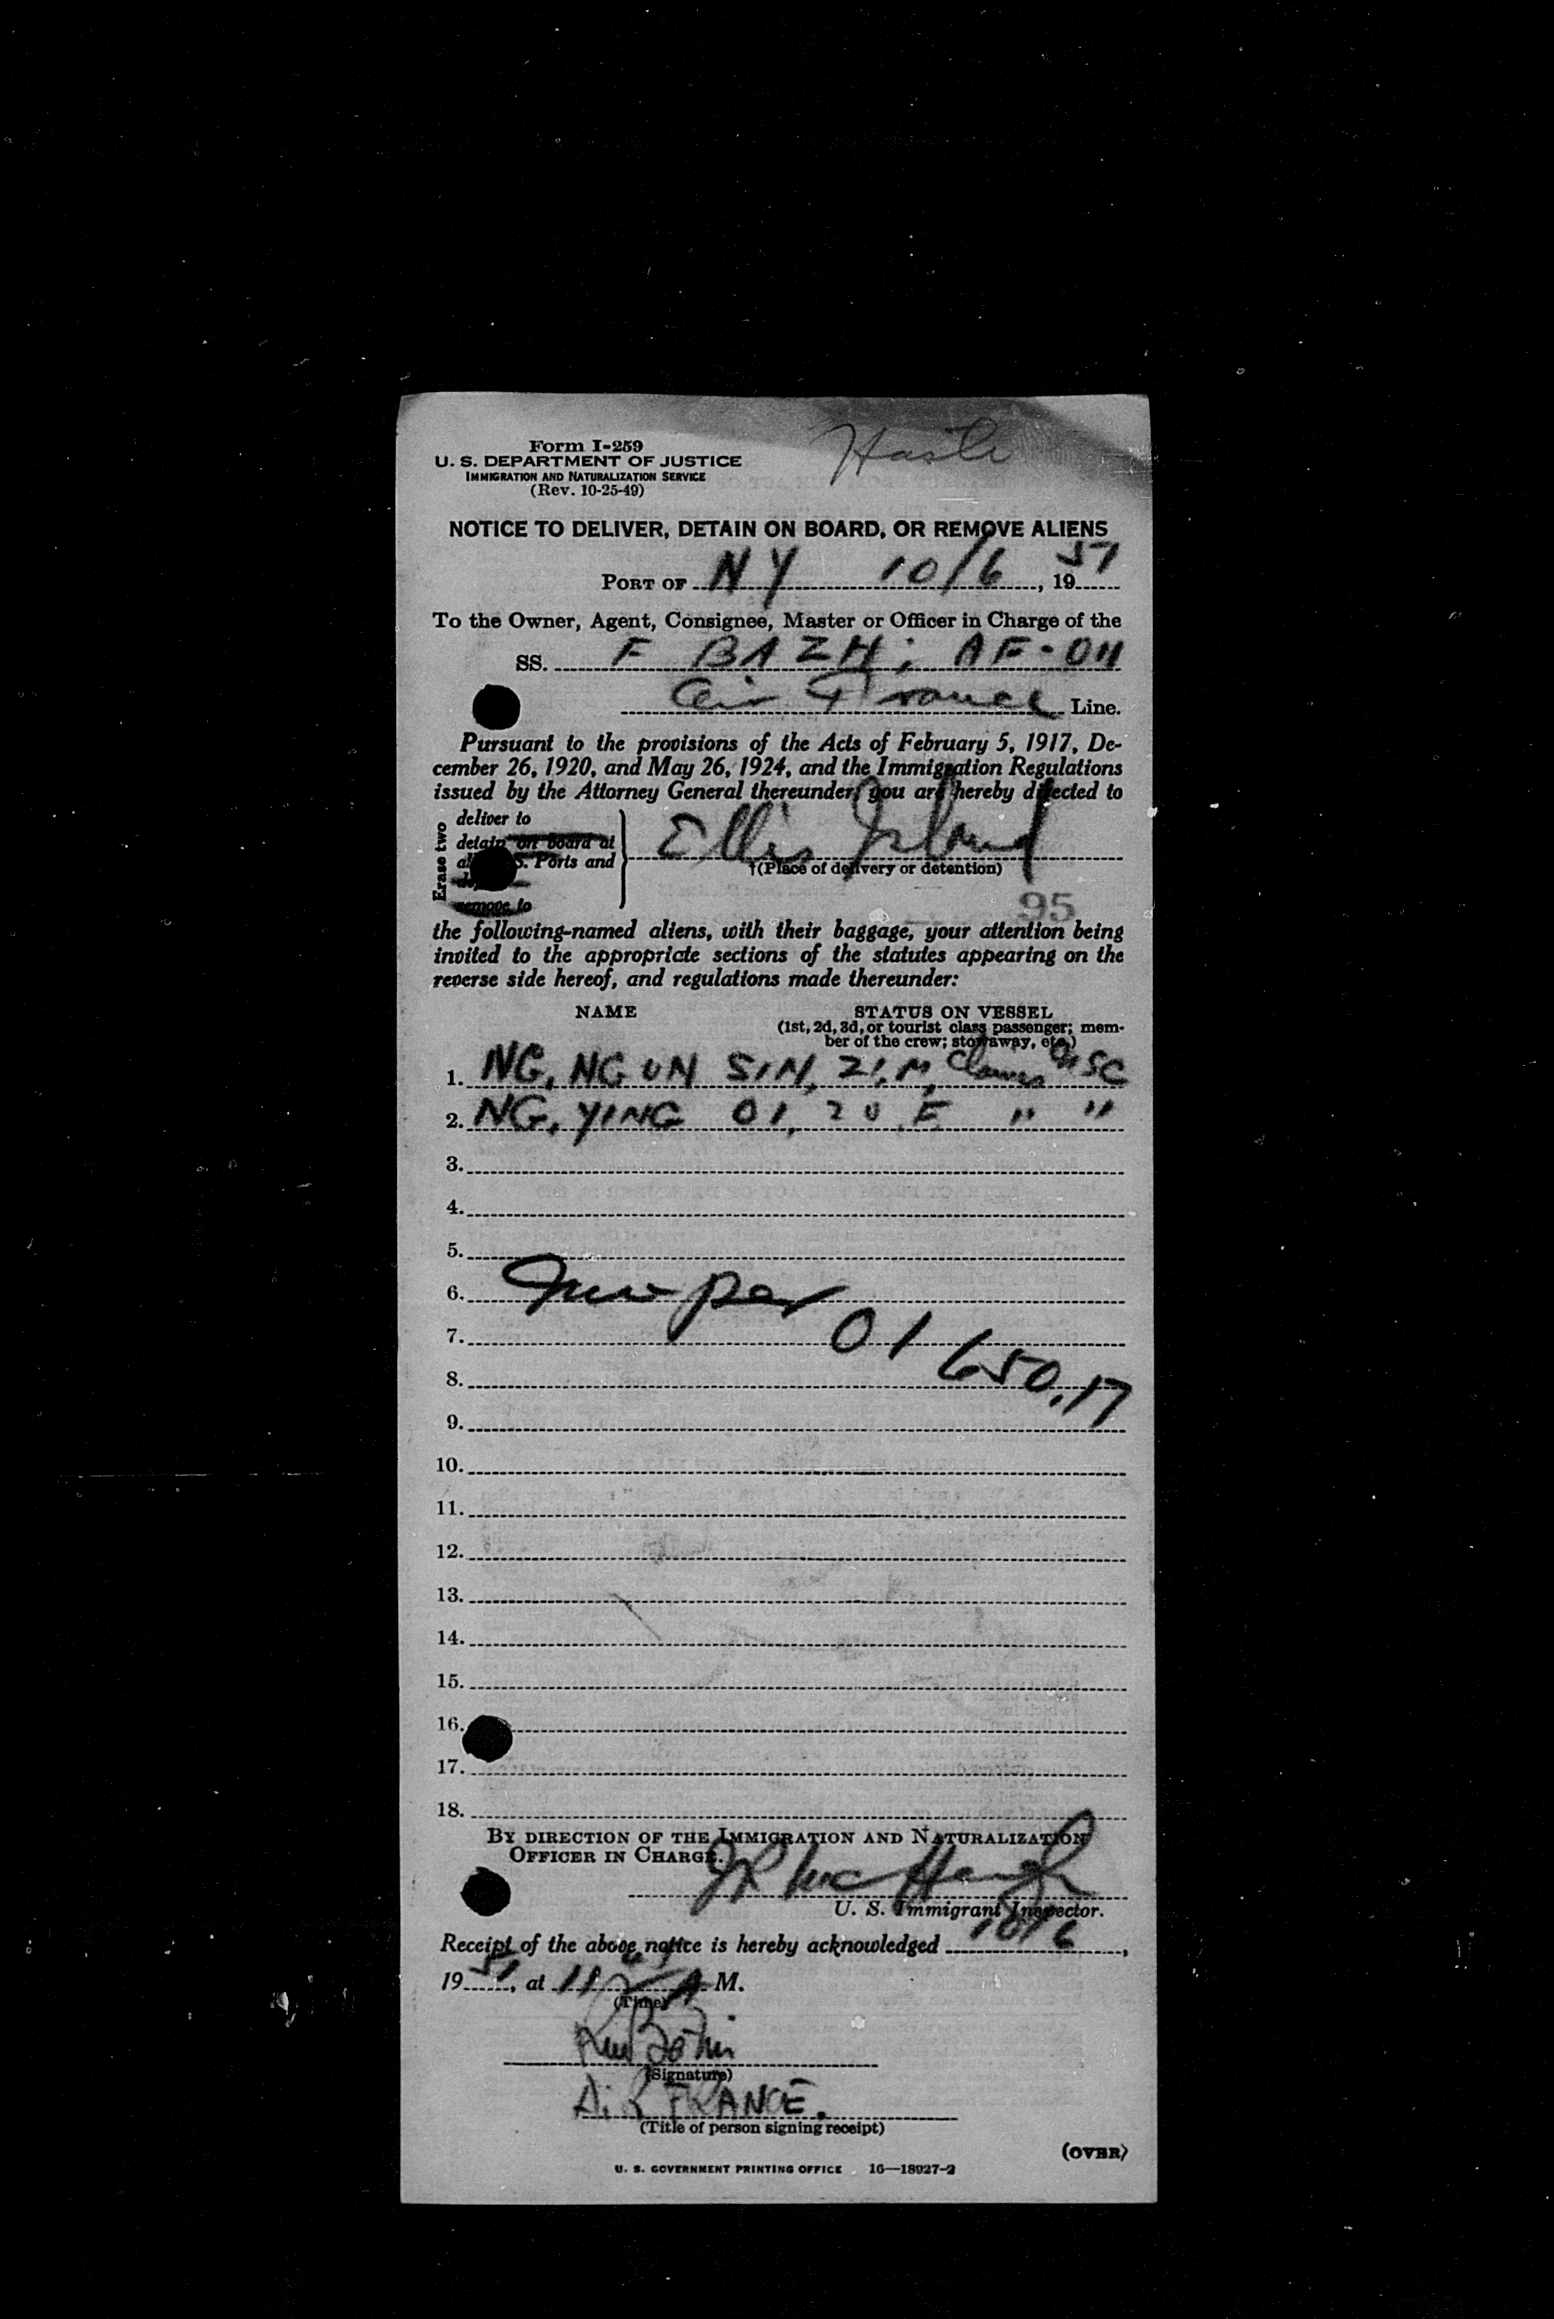 Form I-259
U. S. DEPARTMENT OF JUSTICE
IMMIGRATION AND NATURALIZATION SERVICE
(Rev. 10-25-49)
NOTICE TO DELIVER, DETAIN ON BOARD, OR REMOVE ALIENS
PORT OF NY 10/6, 1951
To the Owner, Agent, Consignee, Master or Officer in Charge of the
SS. F BAZH; AF-011
Air France Line.
Pursuant to the provisions of the Acts of February 5, 1917, De-
cember 26, 1920, and May 26, 1924, and the Immigration Regulations
issued by the Attorney General thereunder, you are hereby directed to
Erase two
deliver to
detain on board at
S. Ports and
remove to
Ellis Island
†(Place of delivery or detention)
95
the following-named aliens, with their baggage, your attention being
invited to the appropriate sections of the statutes appearing on the
reverse side hereof, and regulations made thereunder:
NAME STATUS ON VESSEL
(1st, 2d, 3d, or tourist class passenger; mem-
ber of the crew; stowaway, etc.)
1. NG, NGUN SIN, 21, M, Claims USC
2. NG, YING OI, 20, F " "
3.
4.
5.
6.
7. 01
8. 650.17
9.
10.
11.
12.
13.
14.
15.
16.
17.
18.
BY DIRECTION OF THE IMMIGRATION AND NATURALIZATION
OFFICER IN CHARGE.
U. S. Immigrant Inspector.
Receipt of the above notice is hereby acknowledged 10/6,
1951, at 11 A M.
(Time)
(Signature)
AiR FRANCE.
(Title of person signing receipt)
(OVER)
U. S. GOVERNMENT PRINTING OFFICE 16—18927-2